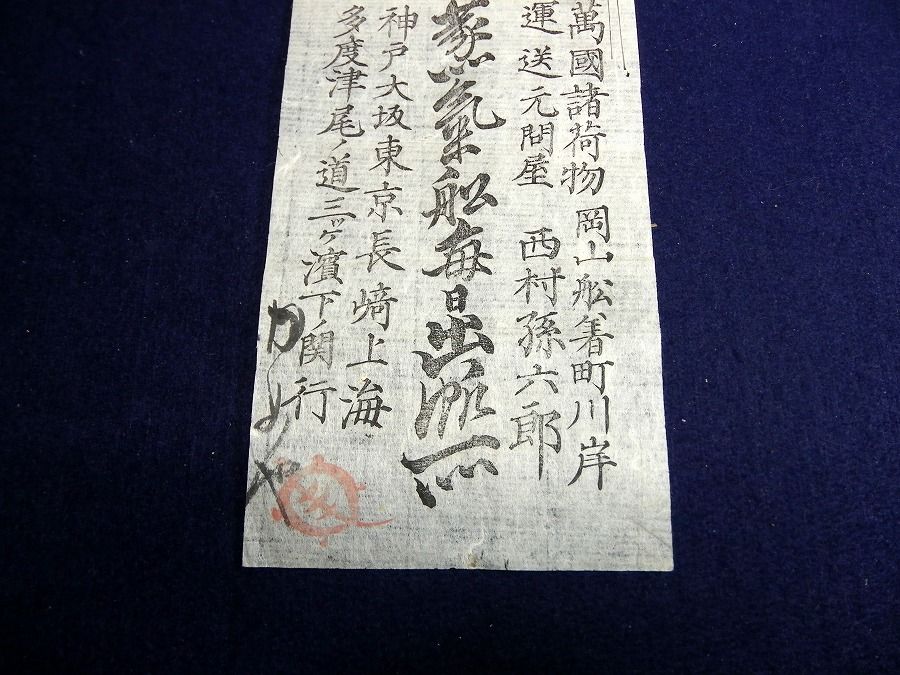 萬國諸荷物 岡山舩着町川岸
運送元問屋 西村孫六郎
蒸氣船毎日出帆所
神戸大坂東京長﨑上海
多度津尾ノ道三ッケ濱下ノ関行
かめや